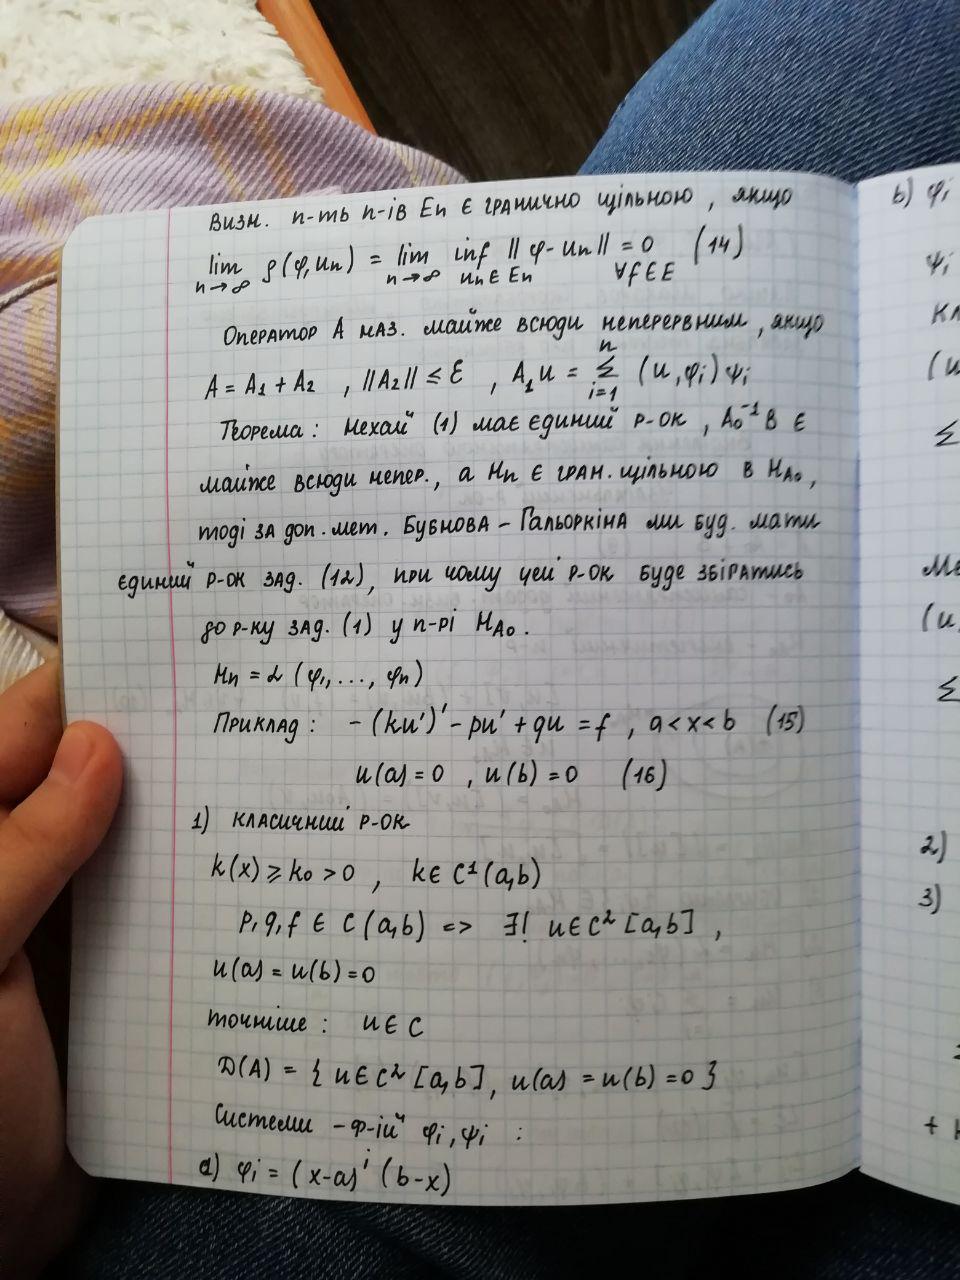 Визн. п-ть п-ів En є гранично щільною, якщо
lim n→∞ ρ(φ, un) = lim n→∞ inf un∈En ||φ - un|| = 0 ∀f∈E (14)
Оператор A наз. майже всюди неперервним, якщо
A = A1 + A2 , ||A2|| ≤ ℰ , A1u = Σ_{i=1}^{n} (u, φi) ψi
Теорема: Нехай (1) має єдиний р-ок, A0⁻¹B є
майже всюди непер., а Hn є гран. щільною в HA0,
тоді за доп. мет. Бубнова - Гальоркіна ми буд. мати
єдиний р-ок зад. (12), при чому цей р-ок буде збіратись
до р-ку зад. (1) у п-рі HA0.
Hn = L (φ1, ..., φn)
Приклад: - (ku')' - pu' + qu = f , a < x < b (15)
u(a) = 0 , u(b) = 0 (16)
1) класичний р-ок
k(x) ≥ k0 > 0 , k ∈ C¹(a,b)
p, q, f ∈ C(a,b) => ∃! u ∈ C² [a,b] ,
u(a) = u(b) = 0
точніше: u ∈ C
D(A) = { u ∈ C² [a,b], u(a) = u(b) = 0 }
Системи - ф-ій φi, ψi :
a) φi = (x-a)^i (b-x)
b) φi
ψi
(u
Σ
(u,
Σ
2)
3)
+